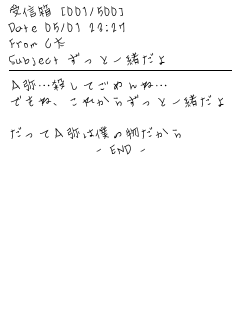 受信箱 [001/500]
Date 05/01 23:27
From C太
Subject ずっと一緒だよ
A弥…殺してごめんね…
でもね、これからずっと一緒だよ
だってA弥は僕の物だから
- END -